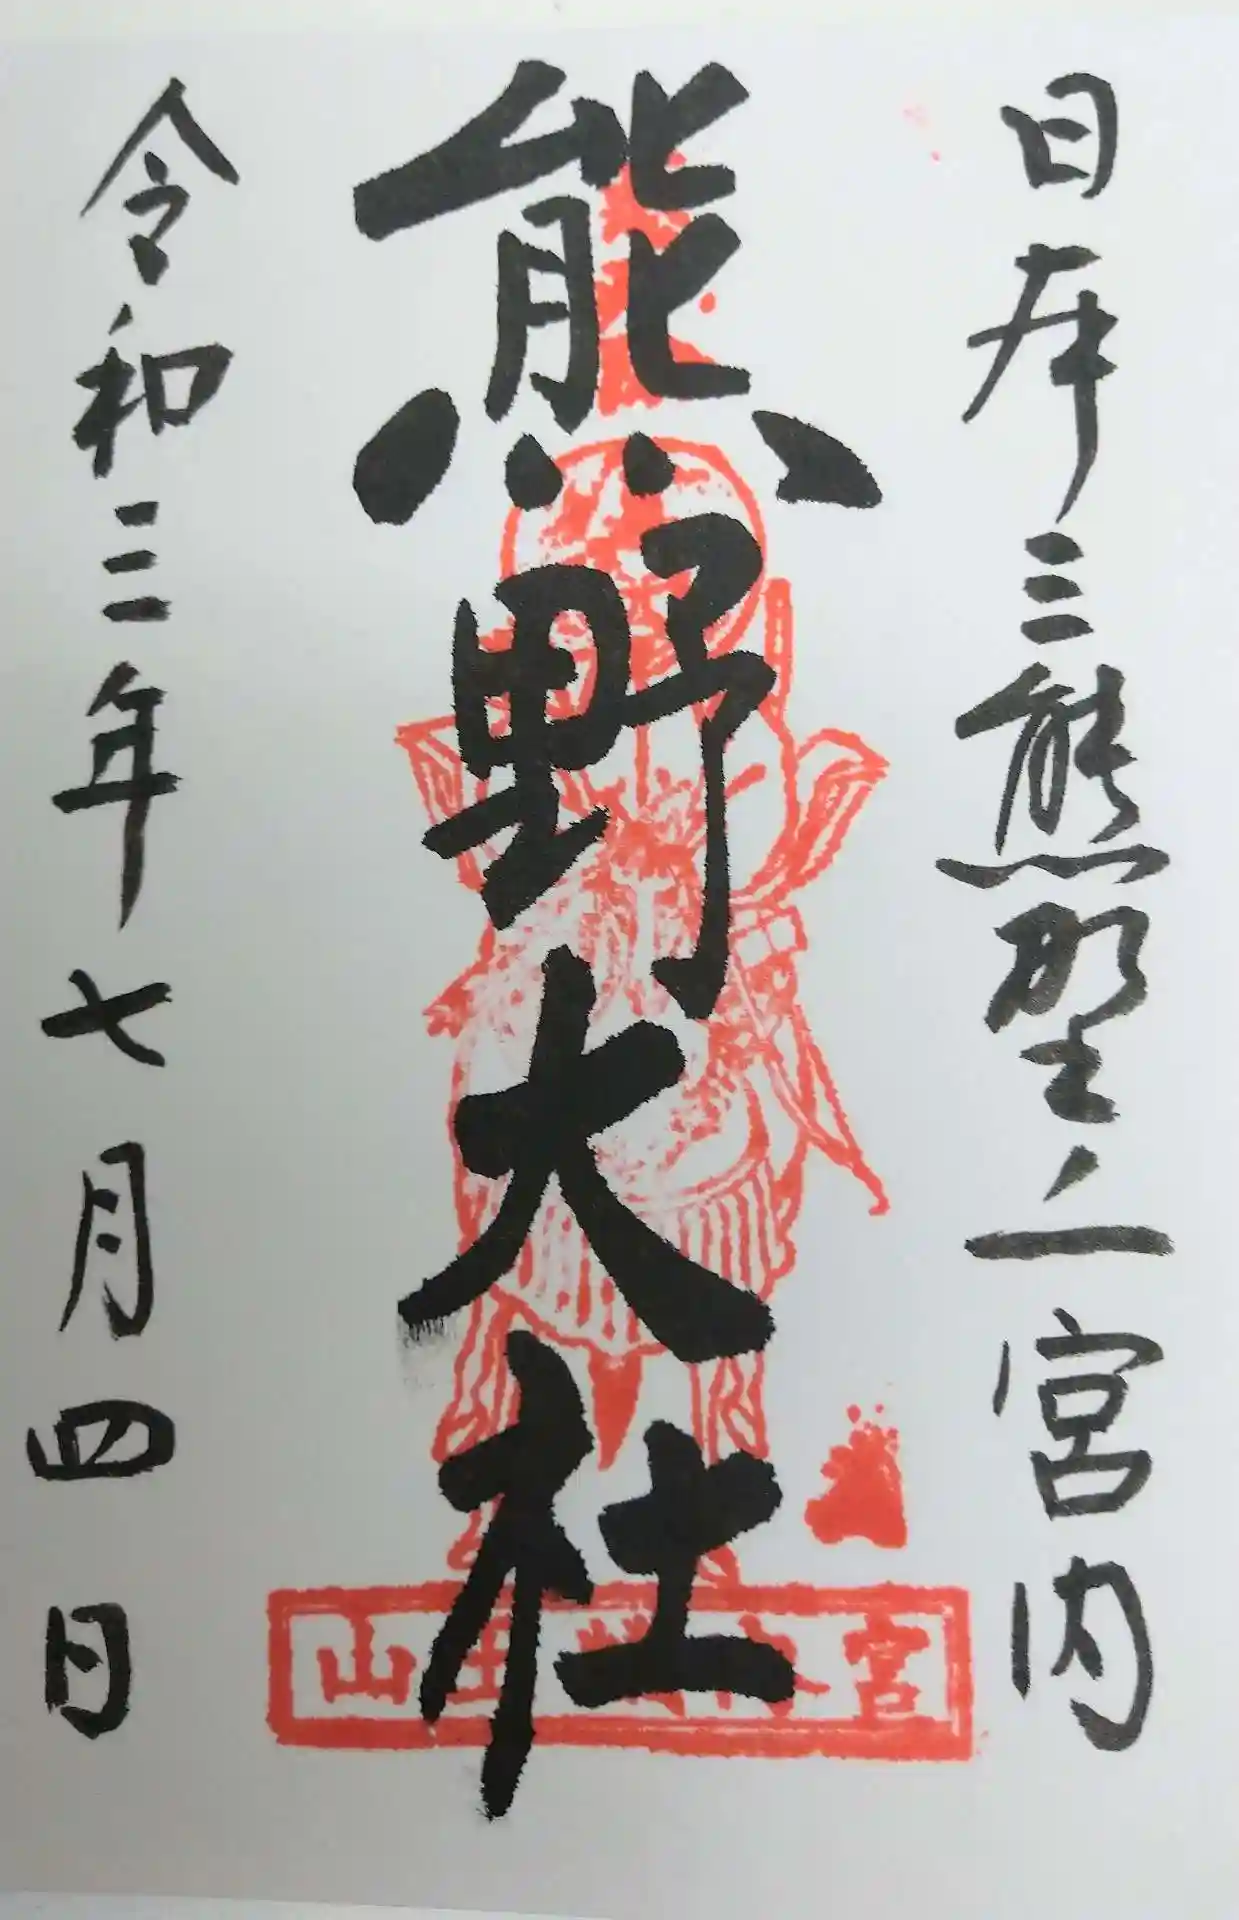 日本三熊野之一宮内
熊野大社
令和三年七月四日
山王
宮